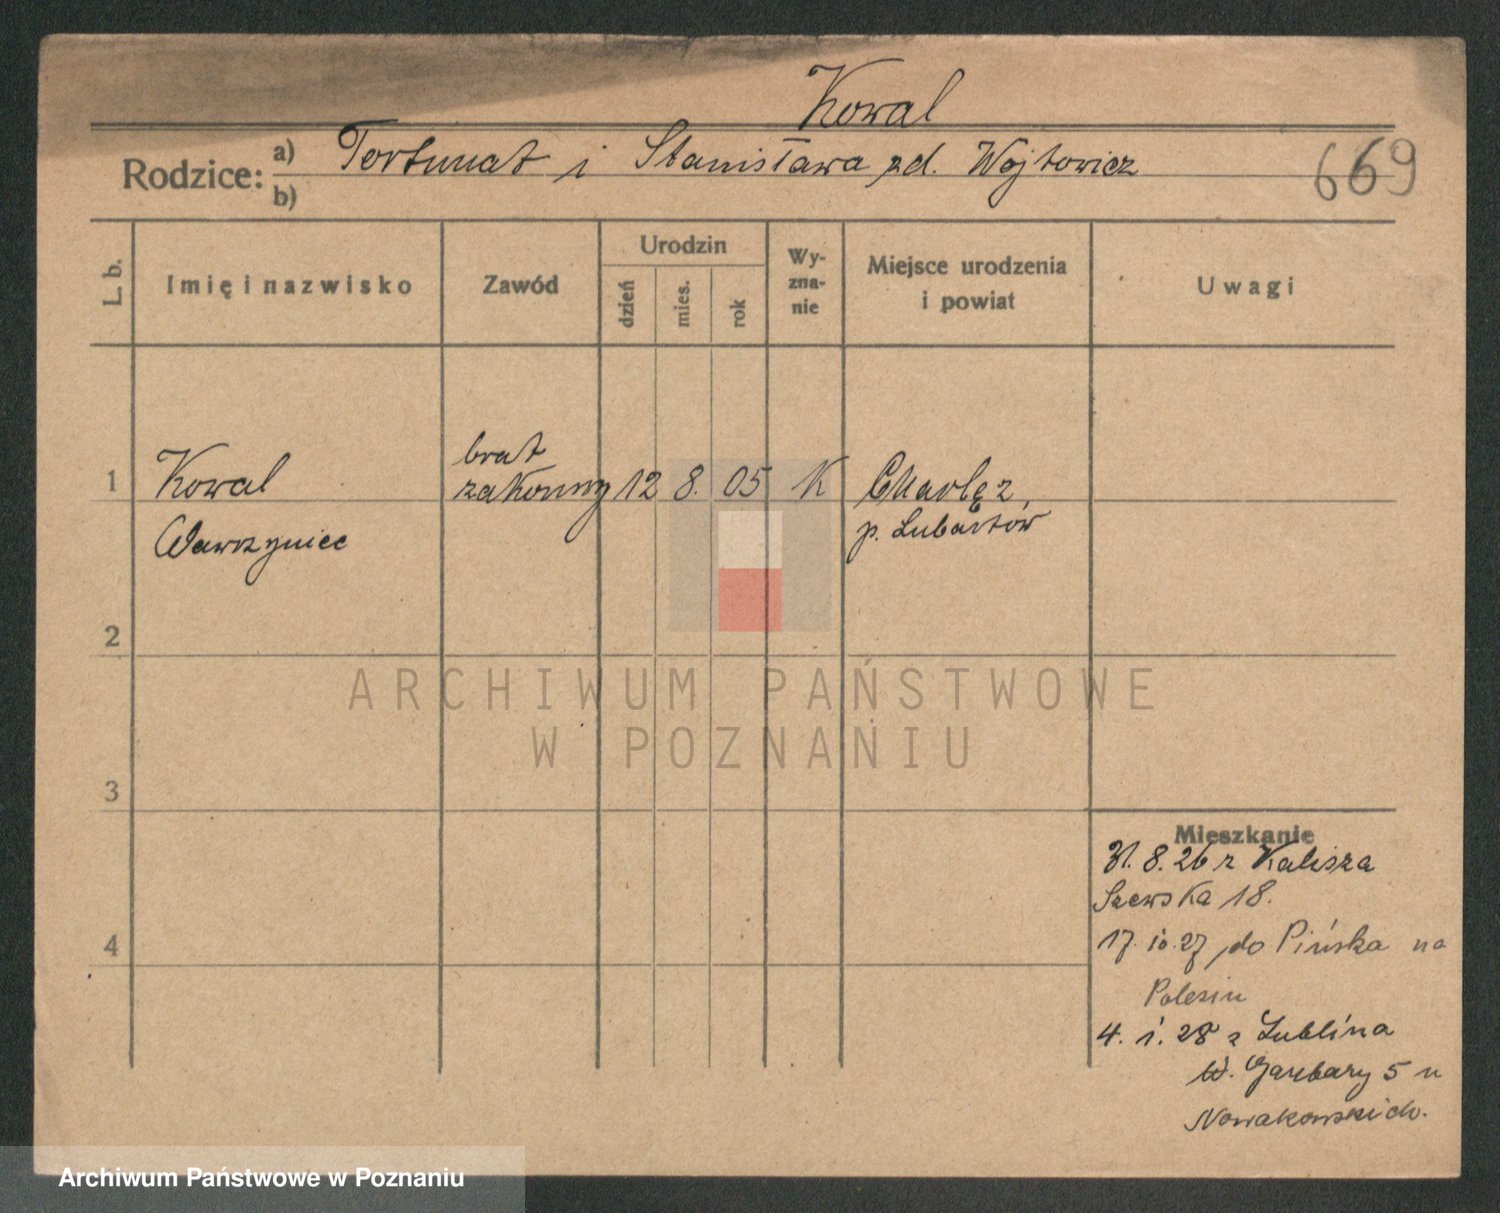 Kowal
Rodzice: a) Fortunat i Stanisława zd. Wojtowicz
b)
669
L. b.
Imię i nazwisko
Zawód
Urodzin
dzień
mies.
rok
Wy-
zna-
nie
Miejsce urodzenia
i powiat
Uwagi
brat
1 Kowal zakonny 12 8. 05 K
Wawrzyniec p. Lubartów
2
ARCHIWUM PAŃSTWOWE
W POZNANIU
3
Mieszkanie
31. 8. 26 z Kalisza
Szewska 18.
4
17. 10. 27 do Pińska na
Polesiu
4. 1. 28 z Lublina
W. Garbary 5 u
Nowakowskich.
Archiwum Państwowe w Poznaniu